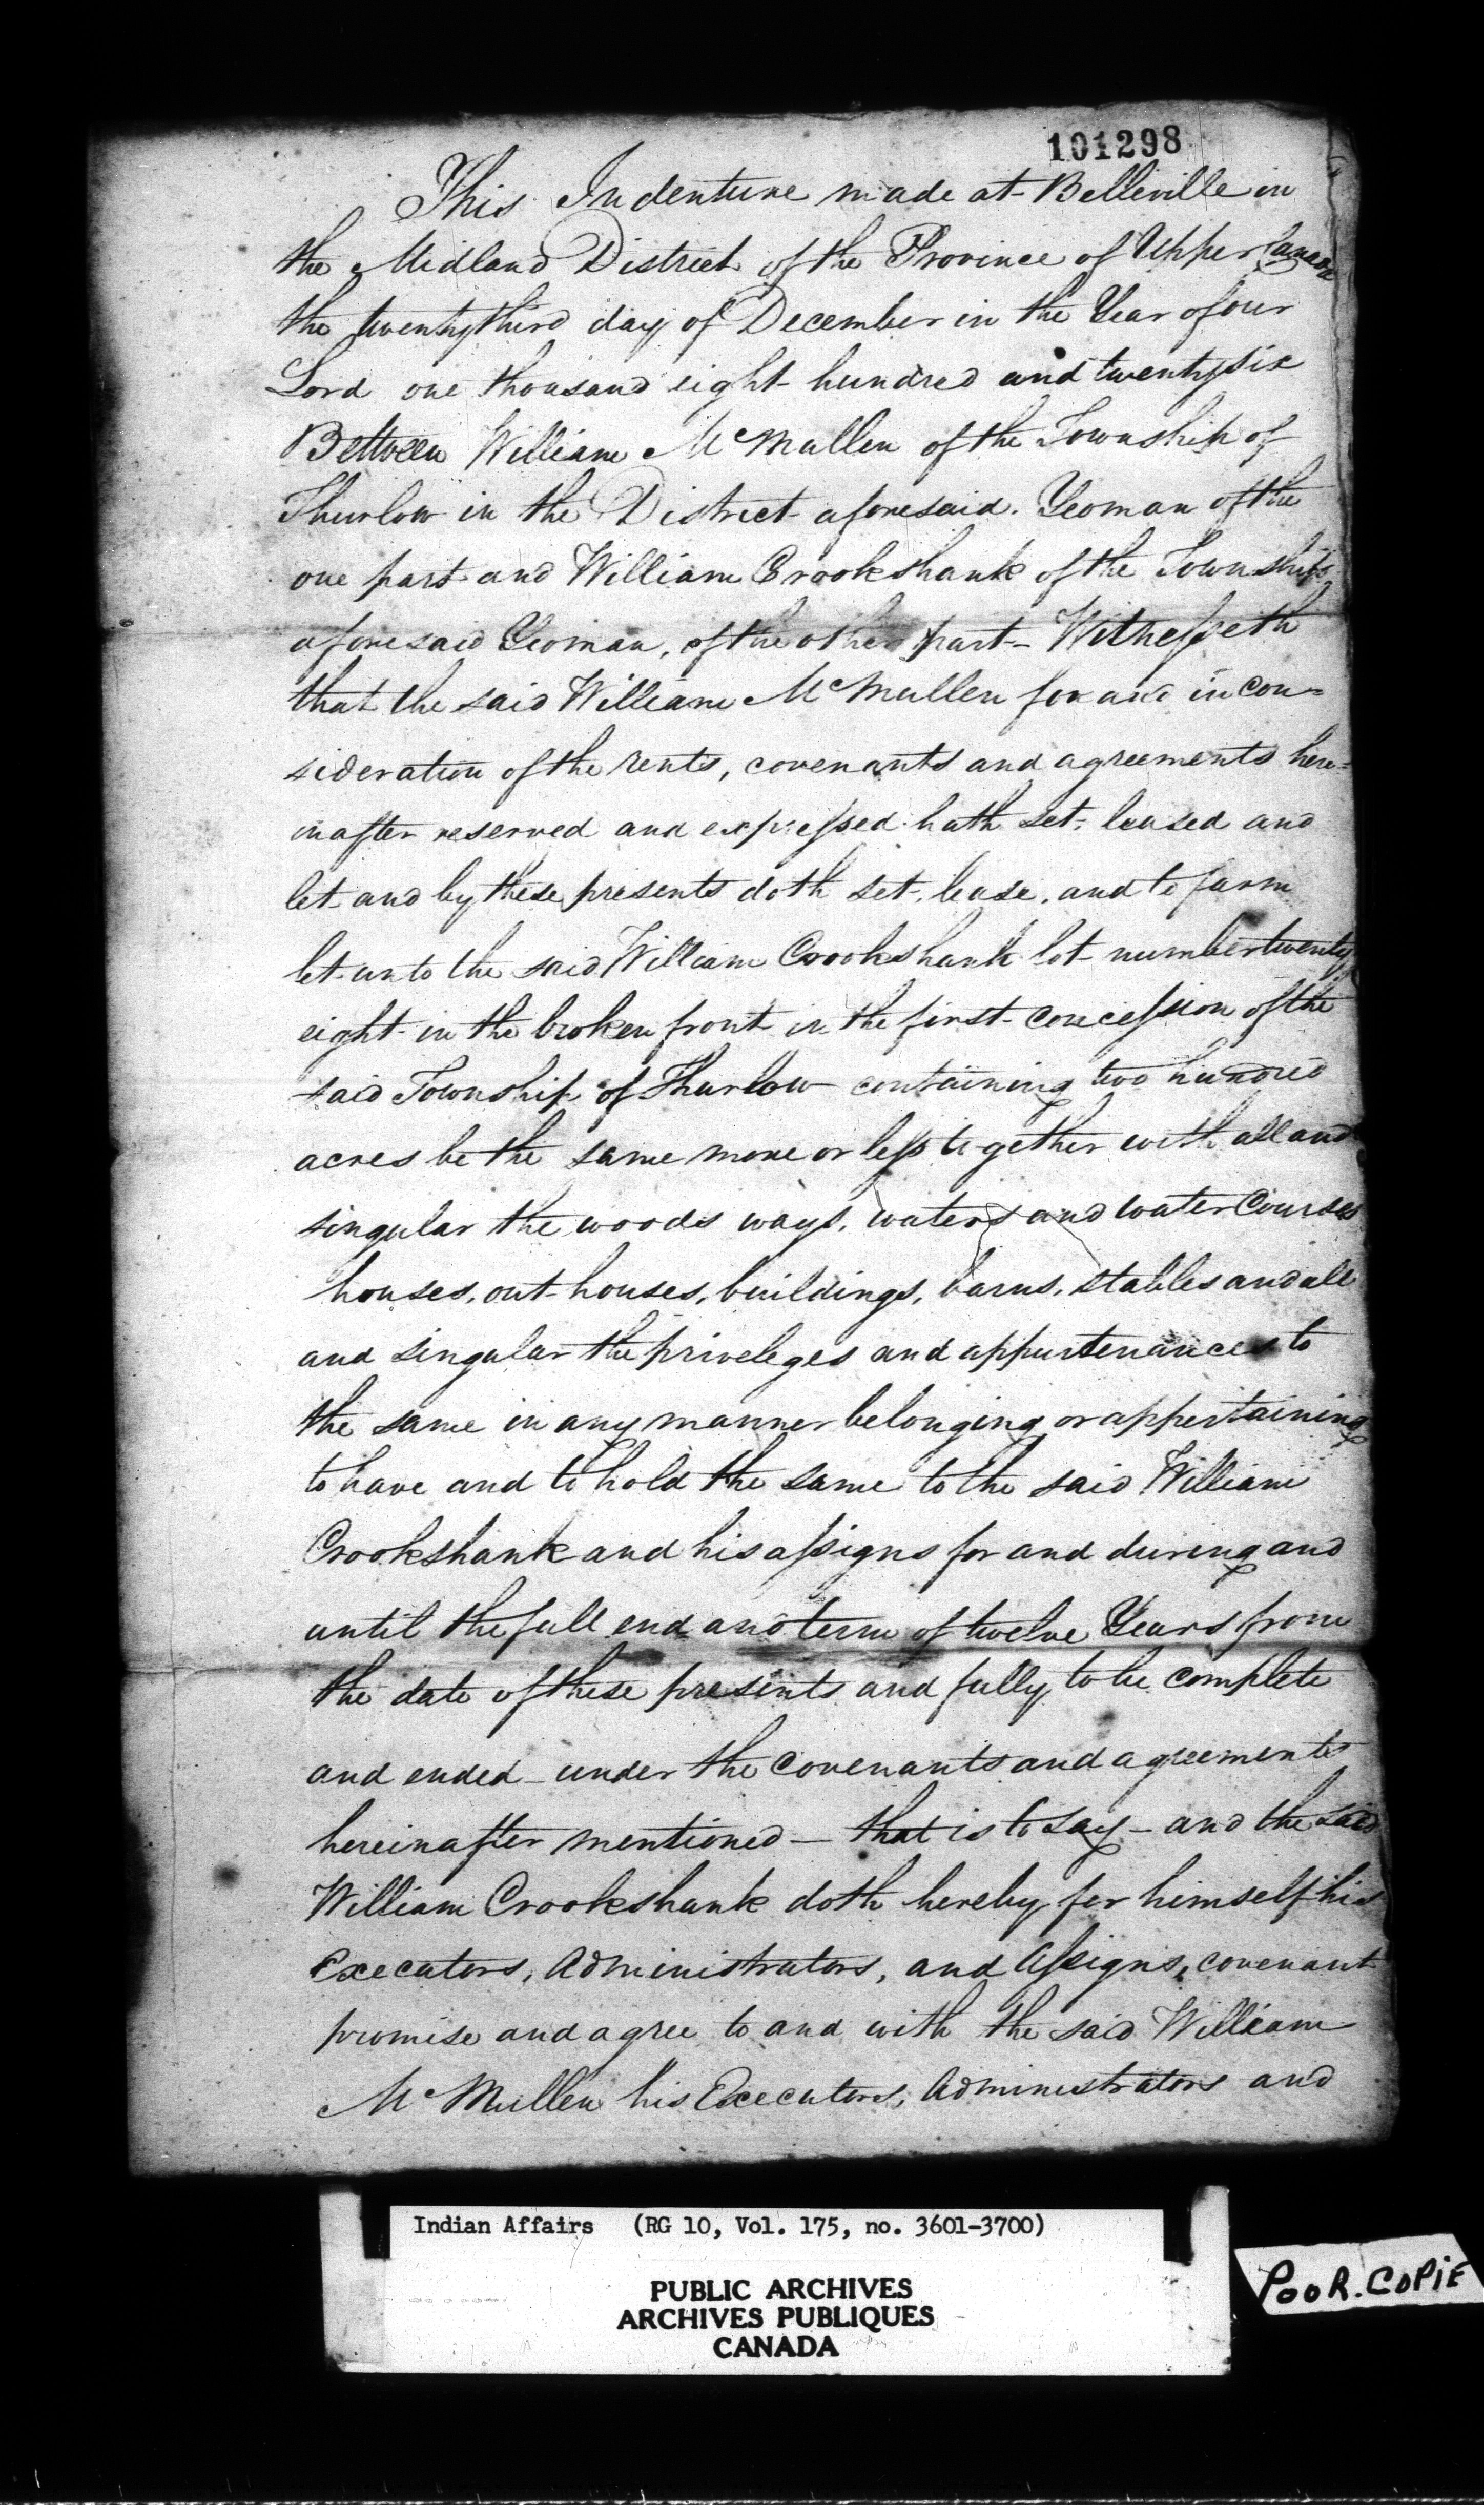 101298
This Indenture made at Belleville in
the Midland District of the Province of Upper Canada
the twentythird day of December in the Year of our
Lord one thousand eight hundred and twentysix
Between William McMullen of the Township of
Thurlow in the District aforesaid. Yeoman of the
one part and William Crookshank of the Township
aforesaid Yeoman, of the other part - Witnesseth
that the said William McMullen for and in con=
sideration of the rents, covenants and agreements here=
inafter reserved and expressed hath set, leased and
let and by these presents doth set, lease, and to farm
let unto the said William Crookshank lot number twenty
eight in the broken front in the first concession of the
said Township of Thurlow containing two hundred
acres be the same more or less together with all and
singular the woods ways, waters and water Courses
houses, out-houses, buildings, barns, stables and all
and singular the priveleges and appurtenances to
the same in any manner belonging or appertaining
to have and to hold the same to the said William
Crookshank and his assigns for and during and
until the full end and term of twelve Years from
the date of these presents and fully to be complete
and ended - under the Covenants and agreements
hereinafter mentioned - that is to say - and the said
William Crookshank doth hereby for himself his
Executors, Administrators, and Assigns, covenant
promise and agree to and with the said William
McMullen his Executors, Administrators and
Indian Affairs (RG 10, Vol. 175, no. 3601-3700)
PUBLIC ARCHIVES
ARCHIVES PUBLIQUES
CANADA
POOR.COPIE